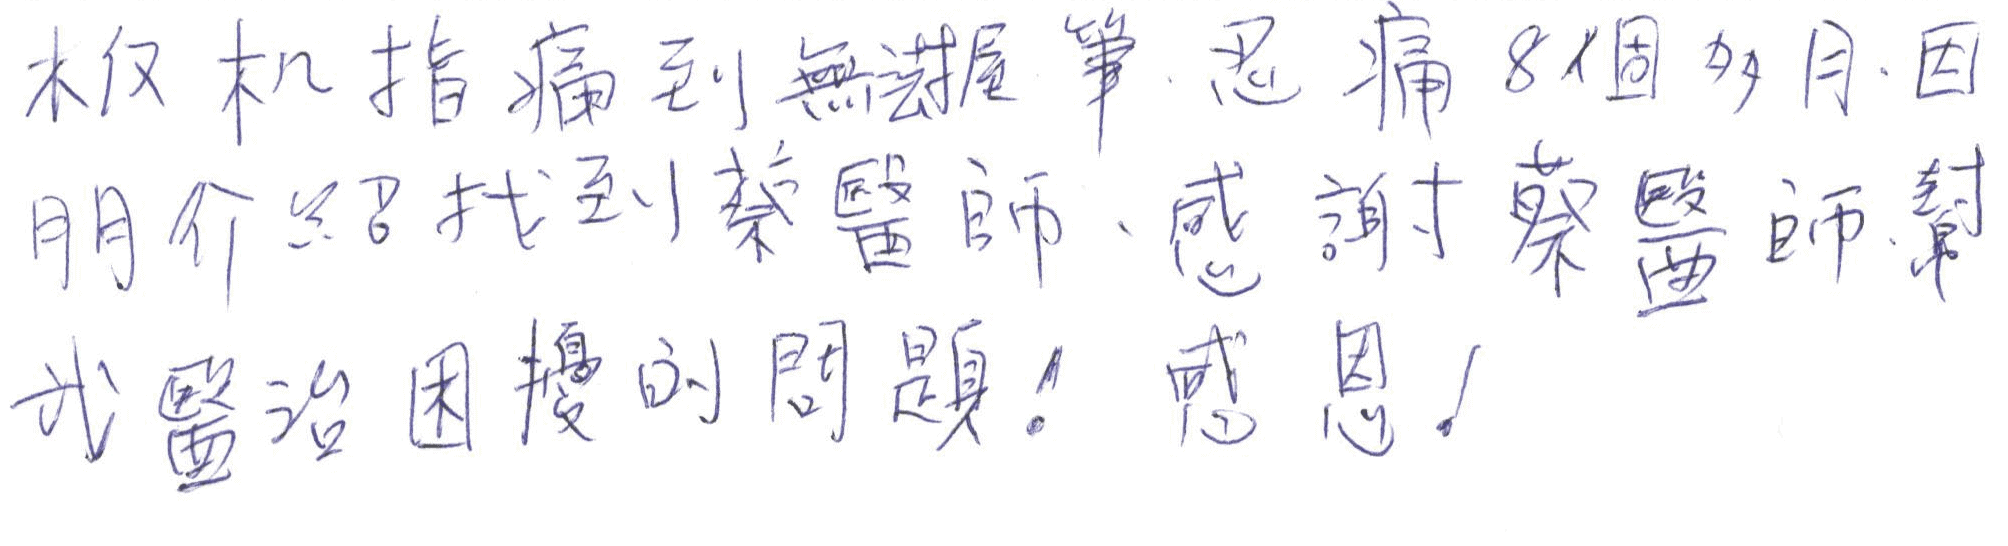 板机指痛到無法握筆.忍痛8個多月.因
朋介紹找到蔡醫師、感謝蔡醫師.幫
我醫治困擾的問題!感恩!